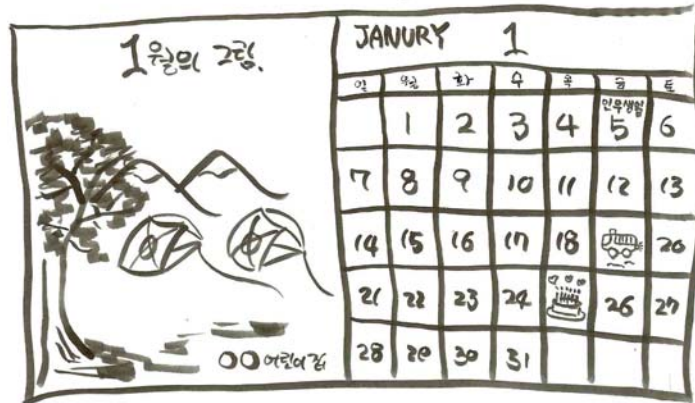 1월의 그림.
○○어린이집
JANURY 1
일 월 화 수 목 금 토
1 2 3 4 민우생일 5 6
7 8 9 10 11 12 13
14 15 16 17 18 20
21 22 23 24 26 27
28 29 30 31